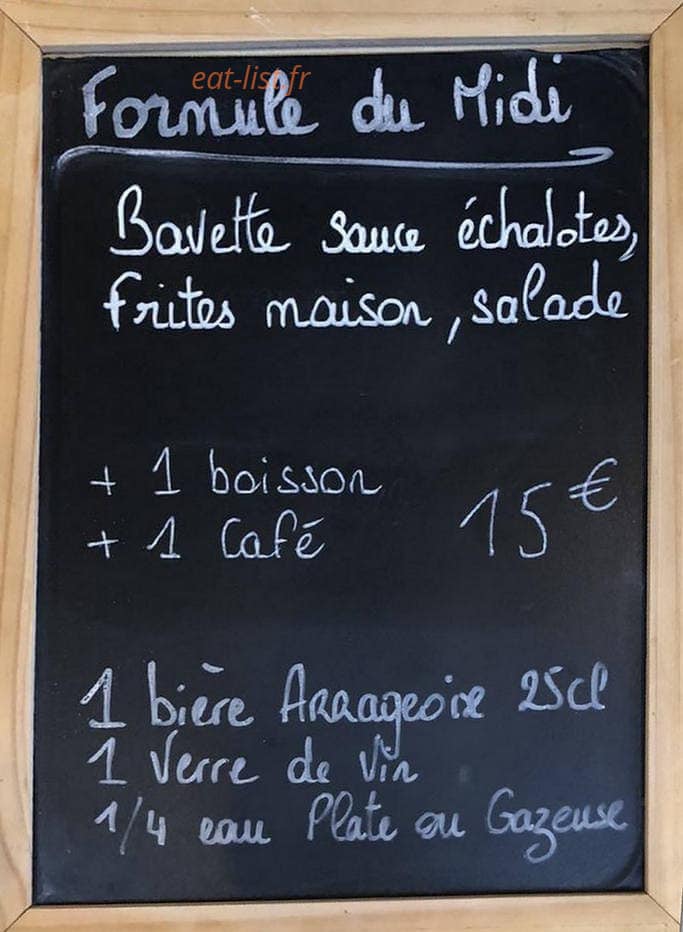 eat-list.fr
Formule du Midi
Bavette sauce échalotes,
frites maison, salade
+ 1 boisson
+ 1 Café 15 €
1 bière Arrageoise 25cl
1 Verre de Vin
1/4 eau Plate ou Gazeuse